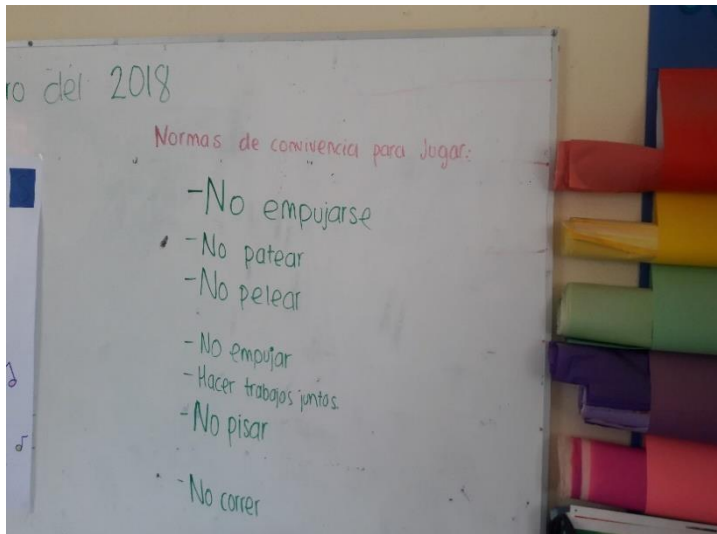 del 2018
Normas de convivencia para Jugar:
-No empujarse
-No patear
-No pelear
-No empujar
-Hacer trabajos juntos.
-No pisar
-No correr